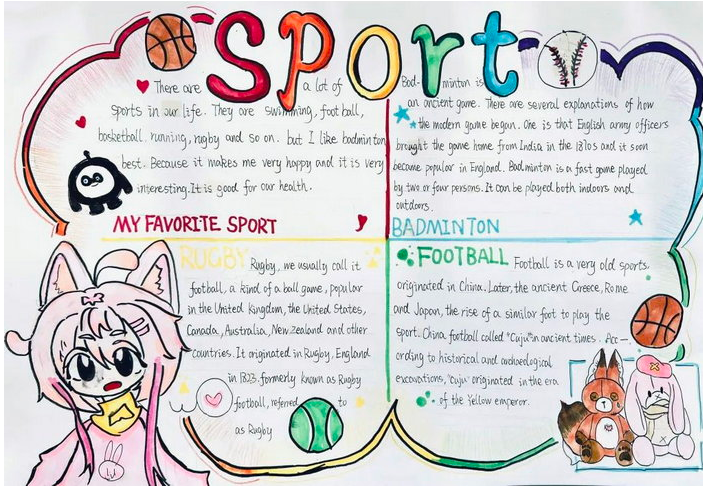 Sport
There are a lot of
sports in our life. They are swimming, football,
basketball. running, rugby and so on. but I like badminton
best. Because it makes me very happy and it is very
interesting. It is good for our health.
MY FAVORITE SPORT
Bad- minton is
an ancient game. There are several explanations of how
the modern game began. One is that English army officers
brought the game home from India in the 1870s and it soon
became popular in England. Badminton is a fast game played
by two or four persons. It can be played both indoors and
outdoors.
BADMINTON
RUGBY Rugby, we usually call it
football, a kind of a ball game, popular
in the United Kingdom, the United States,
Canada, Australia, New Zealand and other
countries. It originated in Rugby, England
in 1823. formerly known as Rugby
football, referred to
as Rugby
FOOTBALL Football is a very old sports,
originated in China. Later, the ancient Greece, Rome
and Japan, the rise of a similar foot to play the
sport. China football called "Cuju" in ancient times. Acc-
ording to historical and archaeological
excavations, "cuju" originated in the era
of the Yellow emperor.